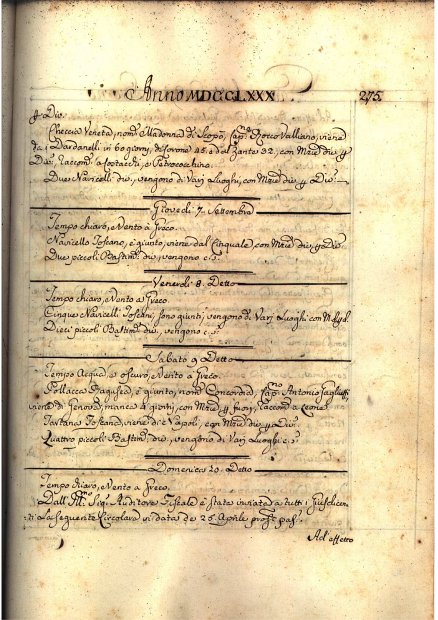 Anno MDCCLXXX 275
p Div.
Checcia Veneta, nom.ª Madonna di Scopò, Cap.º Rocco Valliano, viene
da Dardanelli in 60 giorni, di Corone 45 e dal Zante 32, con Mrzie div. p
Div., Raccom.ª a Coraccij, e Petrococchino.
Due Navicelli div., vengono di Varj Luoghi, con Mrzie div. p Div.
Giovedi 7. Settembre
Tempo chiaro, e Vento a Greco.
Navicello Toscano, è giunto, viene dal Cinquale, con Mrzie div. p Div.
Due piccoli Bastim.ti div., vengono c.s.
Venerdi 8. Detto
Tempo chiaro, e Vento a Greco.
Cinque Navicelli Toscani, sono giunti, vengono di Varj Luoghi con
Dieci piccoli Bastim.ti div., vengono c.s.
Sabato 9 Detto
Tempo Acqua, e oscuro, e Vento a Greco.
Pollacca Ragusea, è giunto, nom.ª Concordia Cap.no Antonio
viene di Genova, manca 4 giorni, con Mrzie p fuori, Raccom.ª a Leone
Tartana Toscana, viene di Napoli, con Mrzie div. p Div.
Quattro piccoli Bastim.ti div., vengono di Varj Luoghi c.s.
Domenica 10. Detto
Tempo chiaro, e Vento a Greco.
Dall' Ill.mo Sig.r Auditore Fiscale è stata inviata a tutti i Giusdicen-
ti la seguente Circolare in data de 26 Aprile pross.º pas.º
Ad effetto